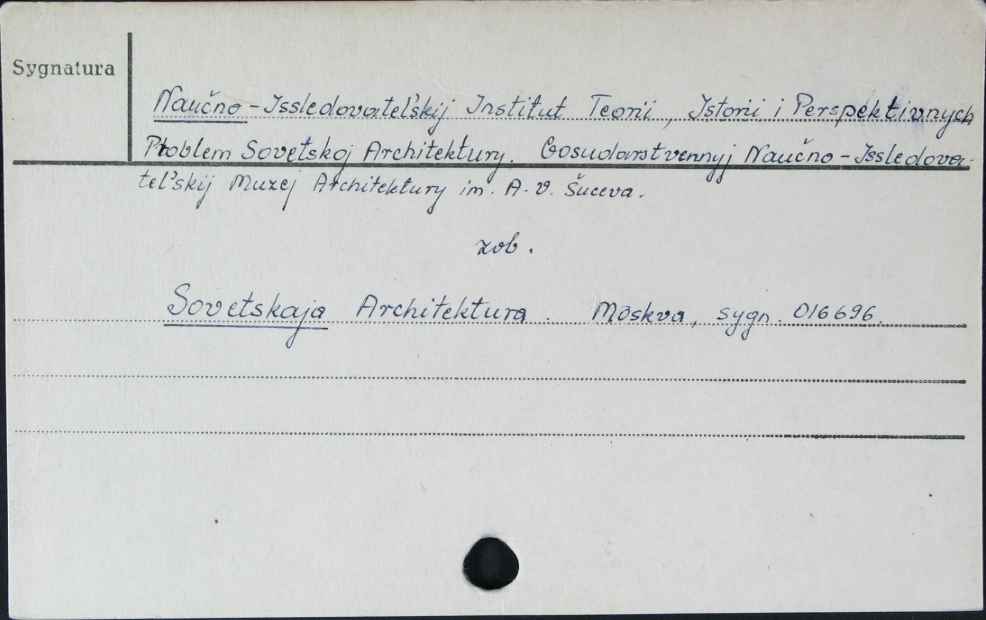 Sygnatura
Naučno - Issledovatel'skij Institut Teorii, Istorii i Perspektivnych
Problem Sovetskoj Architektury. Gosudarstvennyj Naučno - Issledova-
tel'skij Muzej Architektury im. A. V. Ščuseva.
zob.
Sovetskaja Architektura. Moskva, sygn. 016696.